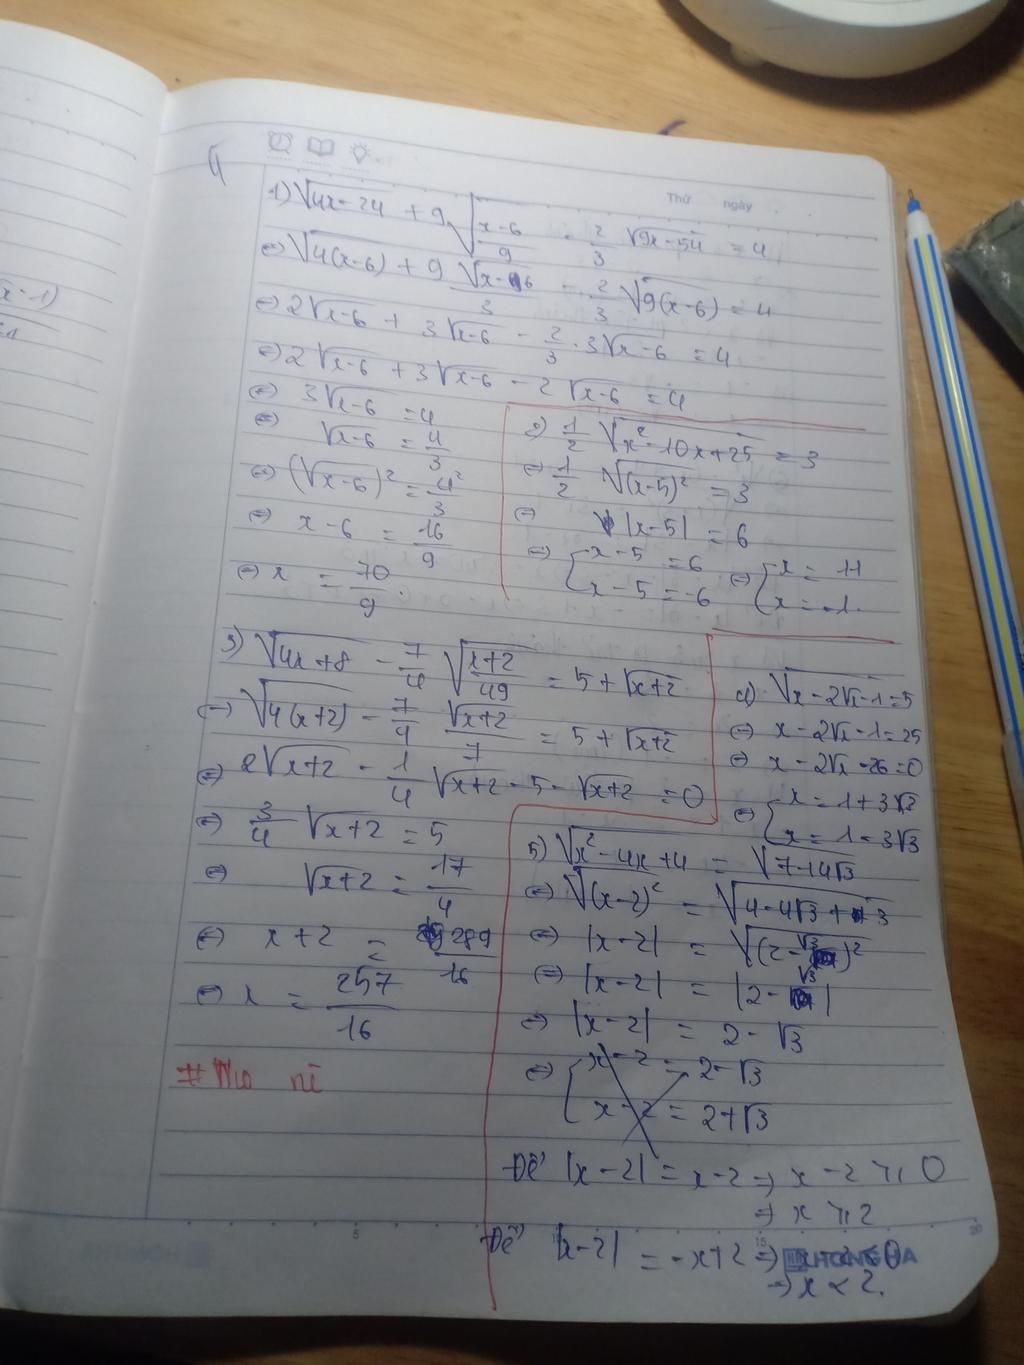 Thứ ngày
1) √(4x-24) + 9√((x-6)/9) - 2/3 √(9x-54) = 4
⇔ √(4(x-6)) + 9 √(x-6)/3 - 2/3 √(9(x-6)) = 4
⇔ 2√(x-6) + 3√(x-6) - 2/3 . 3√(x-6) = 4
⇔ 2√(x-6) + 3√(x-6) - 2√(x-6) = 4
⇔ 3√(x-6) = 4
⇔ √(x-6) = 4/3
⇔ (√(x-6))² = 4²/3
⇔ x-6 = 16/9
⇔ x = 70/9.
2) 1/2 √(x²-10x+25) = 3
⇔ 1/2 √((x-5)²) = 3
⇔ |x-5| = 6
⇔ [x-5 = 6 ⇔ [x = 11
x-5 = -6 x = -1.
3) √(4x+8) - 7/4 √((x+2)/49) = 5 + √(x+2)
⇔ √(4(x+2)) - 7/4 √(x+2)/7 = 5 + √(x+2)
⇔ 2√(x+2) - 1/4 √(x+2) - 5 - √(x+2) = 0
⇔ 3/4 √(x+2) = 5
⇔ √(x+2) = 17/4
⇔ x+2 = 289/16
⇔ x = 257/16
4) √(x-2√x-1) = 5
⇔ x-2√x-1 = 25
⇔ x-2√x-26 = 0
⇔ [x = 1+3√3
x = 1-3√3
5) √(x²-4x+4) = √(7-14√3)
⇔ √((x-2)²) = √(4-4√3+3)
⇔ |x-2| = √((2-√3)²)
⇔ |x-2| = |2-√3|
⇔ |x-2| = 2-√3
⇔ [x-2 = 2-√3
x-2 = 2+√3
Để |x-2| = x-2 ⇒ x-2 ⩾ 0
⇒ x ⩾ 2
Để |x-2| = -x+2 ⇒ x-2 < 0
⇒ x < 2.
HONG HA
5 15 20